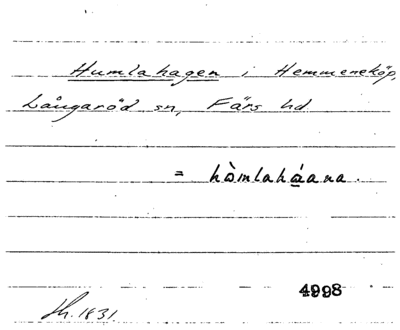 Humlahagen i Hemmeneköp,
Långaröd sn, Färs hd
= hòmlaháana.
4998
1831.